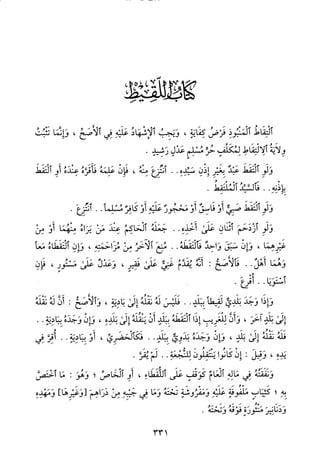 كتاب اللقيط
التقاط المنبوذ فرض كفاية ، ويجب الإشهاد عليه في الأصح ، وإنما تثبت
ولاية الالتقاط لمكلف حر مسلم عدل رشيد .
ولو التقط عبد بغير إذن سيده .. انتزع منه ، فإن علمه فأقره عنده أو التقط
بإذنه .. فالسيد الملتقط .
ولو التقط صبي أو فاسق أو محجور عليه أو كافر مسلماً .. انتزع .
ولو ازدحم اثنان على أخذه .. جعله الحاكم عند من يراه منهما أو من
غيرهما ، وإن سبق واحد فالتقطه .. منع الآخر من مزاحمته ، وإن التقطاه معاً
وهما أهل .. فالأصح : أنه يقدم غني على فقير ، وعدل على مستور ، فإن
استويا .. أقرع .
وإذا وجد بلدي لقيطاً ببلد .. فليس له نقله إلى بادية ، والأصح : أن له نقله
إلى بلد آخر ، وأن للغريب إذا التقط ببلد أن ينقله إلى بلده ، وإن وجده ببادية ..
فله نقله إلى بلد ، وإن وجده بدوي ببلد .. فكالحضري ، أو ببادية .. أقر في
يده ، وقيل : إن كانوا ينتقلون للنجعة .. لم يقر .
ونفقته في ماله العام كوقف على اللقطاء ، أو الخاص ؛ وهو : ما اختص
به ؛ كثياب ملفوفة عليه ومفروشة تحته وما في جيبه من دراهم [وغيرها] ومهده
ودنانير منثورة فوقه وتحته .
٣٣١